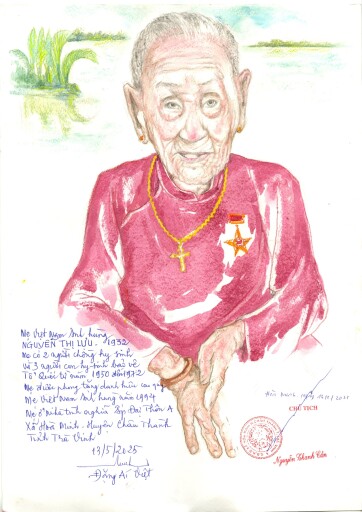 Mẹ Việt Nam Anh hùng
NGUYỄN THỊ LƯU. 1932
Mẹ có 2 người chồng hy sinh
và 3 người con hy sinh bảo vệ
Tổ Quốc từ năm 1950 đến 1972
Mẹ được phong tặng danh hiệu cao quý
Mẹ Việt Nam Anh hùng năm 1994
Mẹ ở nhà tình nghĩa ấp Đại Thôn A
Xã Hoà Minh. Huyện Châu Thành
Tỉnh Trà Vinh
13/5/2025
Đặng Ái Việt
CHỦ TỊCH
Nguyễn Thanh Cần